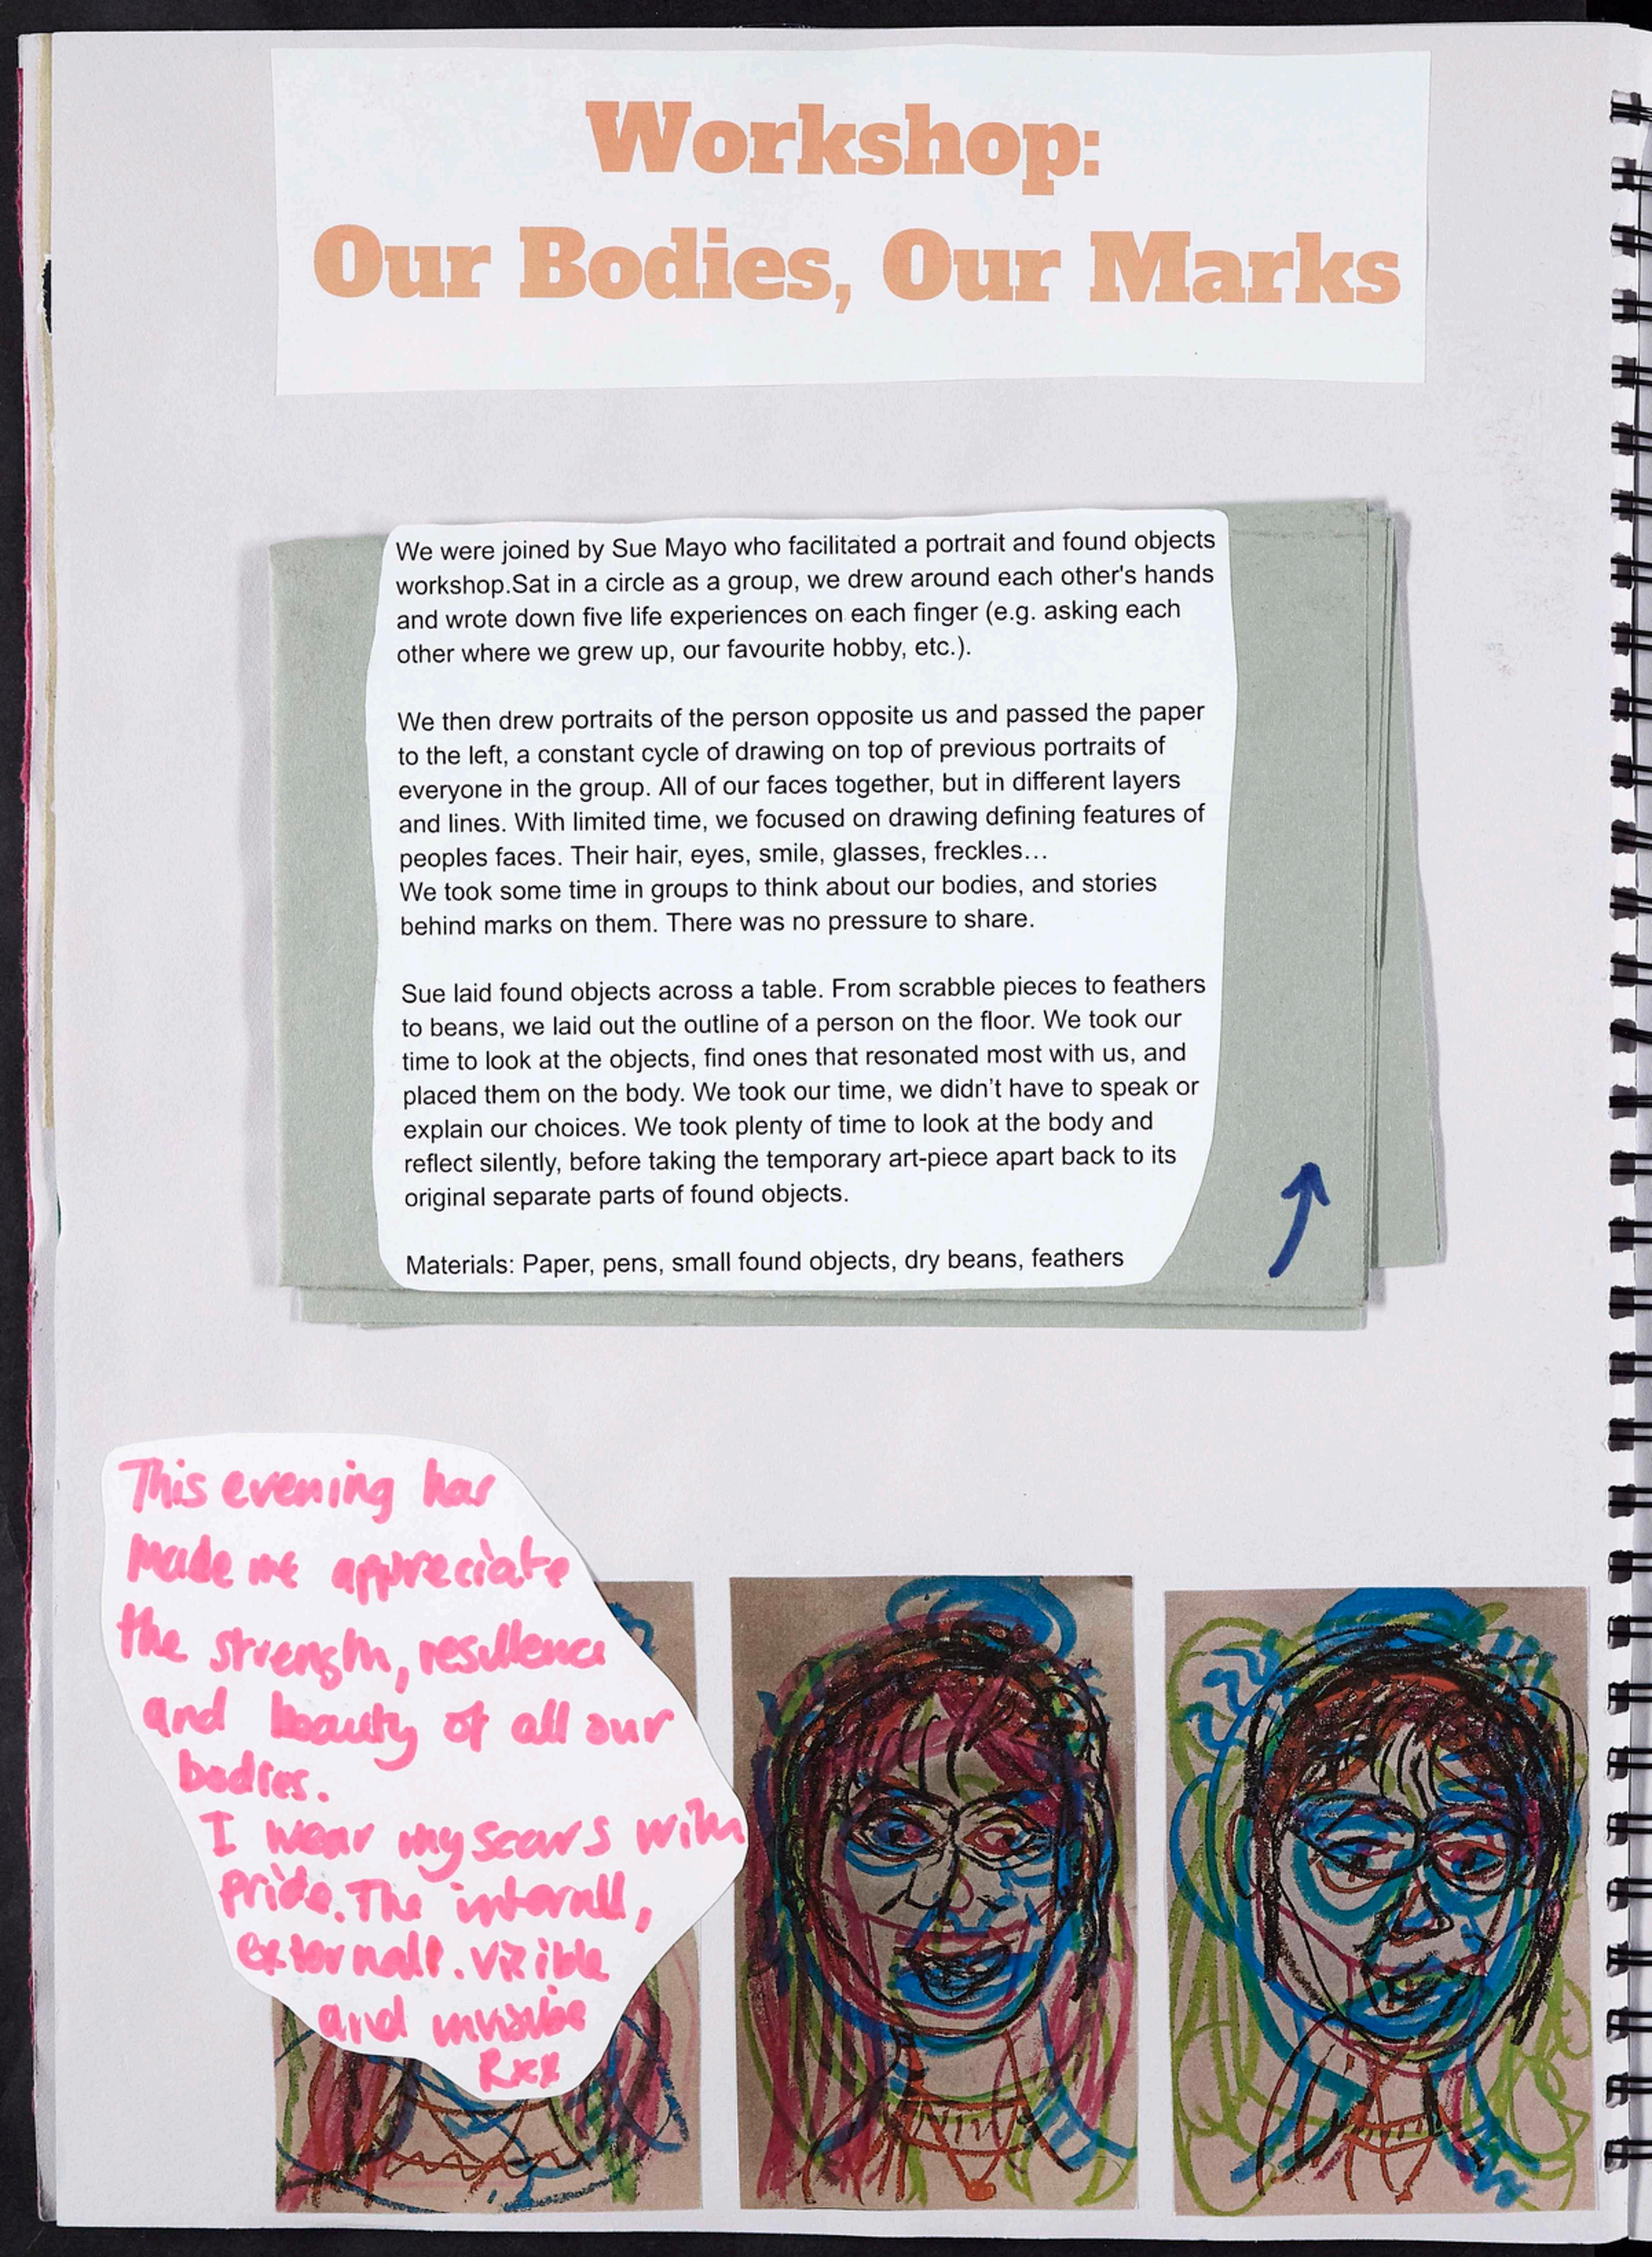 Workshop:
Our Bodies, Our Marks
We were joined by Sue Mayo who facilitated a portrait and found objects
workshop.Sat in a circle as a group, we drew around each other's hands
and wrote down five life experiences on each finger (e.g. asking each
other where we grew up, our favourite hobby, etc.).
We then drew portraits of the person opposite us and passed the paper
to the left, a constant cycle of drawing on top of previous portraits of
everyone in the group. All of our faces together, but in different layers
and lines. With limited time, we focused on drawing defining features of
peoples faces. Their hair, eyes, smile, glasses, freckles…
We took some time in groups to think about our bodies, and stories
behind marks on them. There was no pressure to share.
Sue laid found objects across a table. From scrabble pieces to feathers
to beans, we laid out the outline of a person on the floor. We took our
time to look at the objects, find ones that resonated most with us, and
placed them on the body. We took our time, we didn't have to speak or
explain our choices. We took plenty of time to look at the body and
reflect silently, before taking the temporary art-piece apart back to its
original separate parts of found objects.
Materials: Paper, pens, small found objects, dry beans, feathers
This evening has
made me appreciate
the strength, resilience
and beauty of all our
bodies.
I wear my scars with
pride. The internall,
externall. visible
and invisible
Rxx